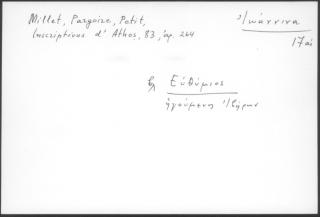 Millet, Pargoire, Petit,
Inscriptions d'Athos, 83, ἀρ. 264
Ἰωάννινα
17 αἰ
Εὐθύμιος
ἡγούμενος Ἰβήρων